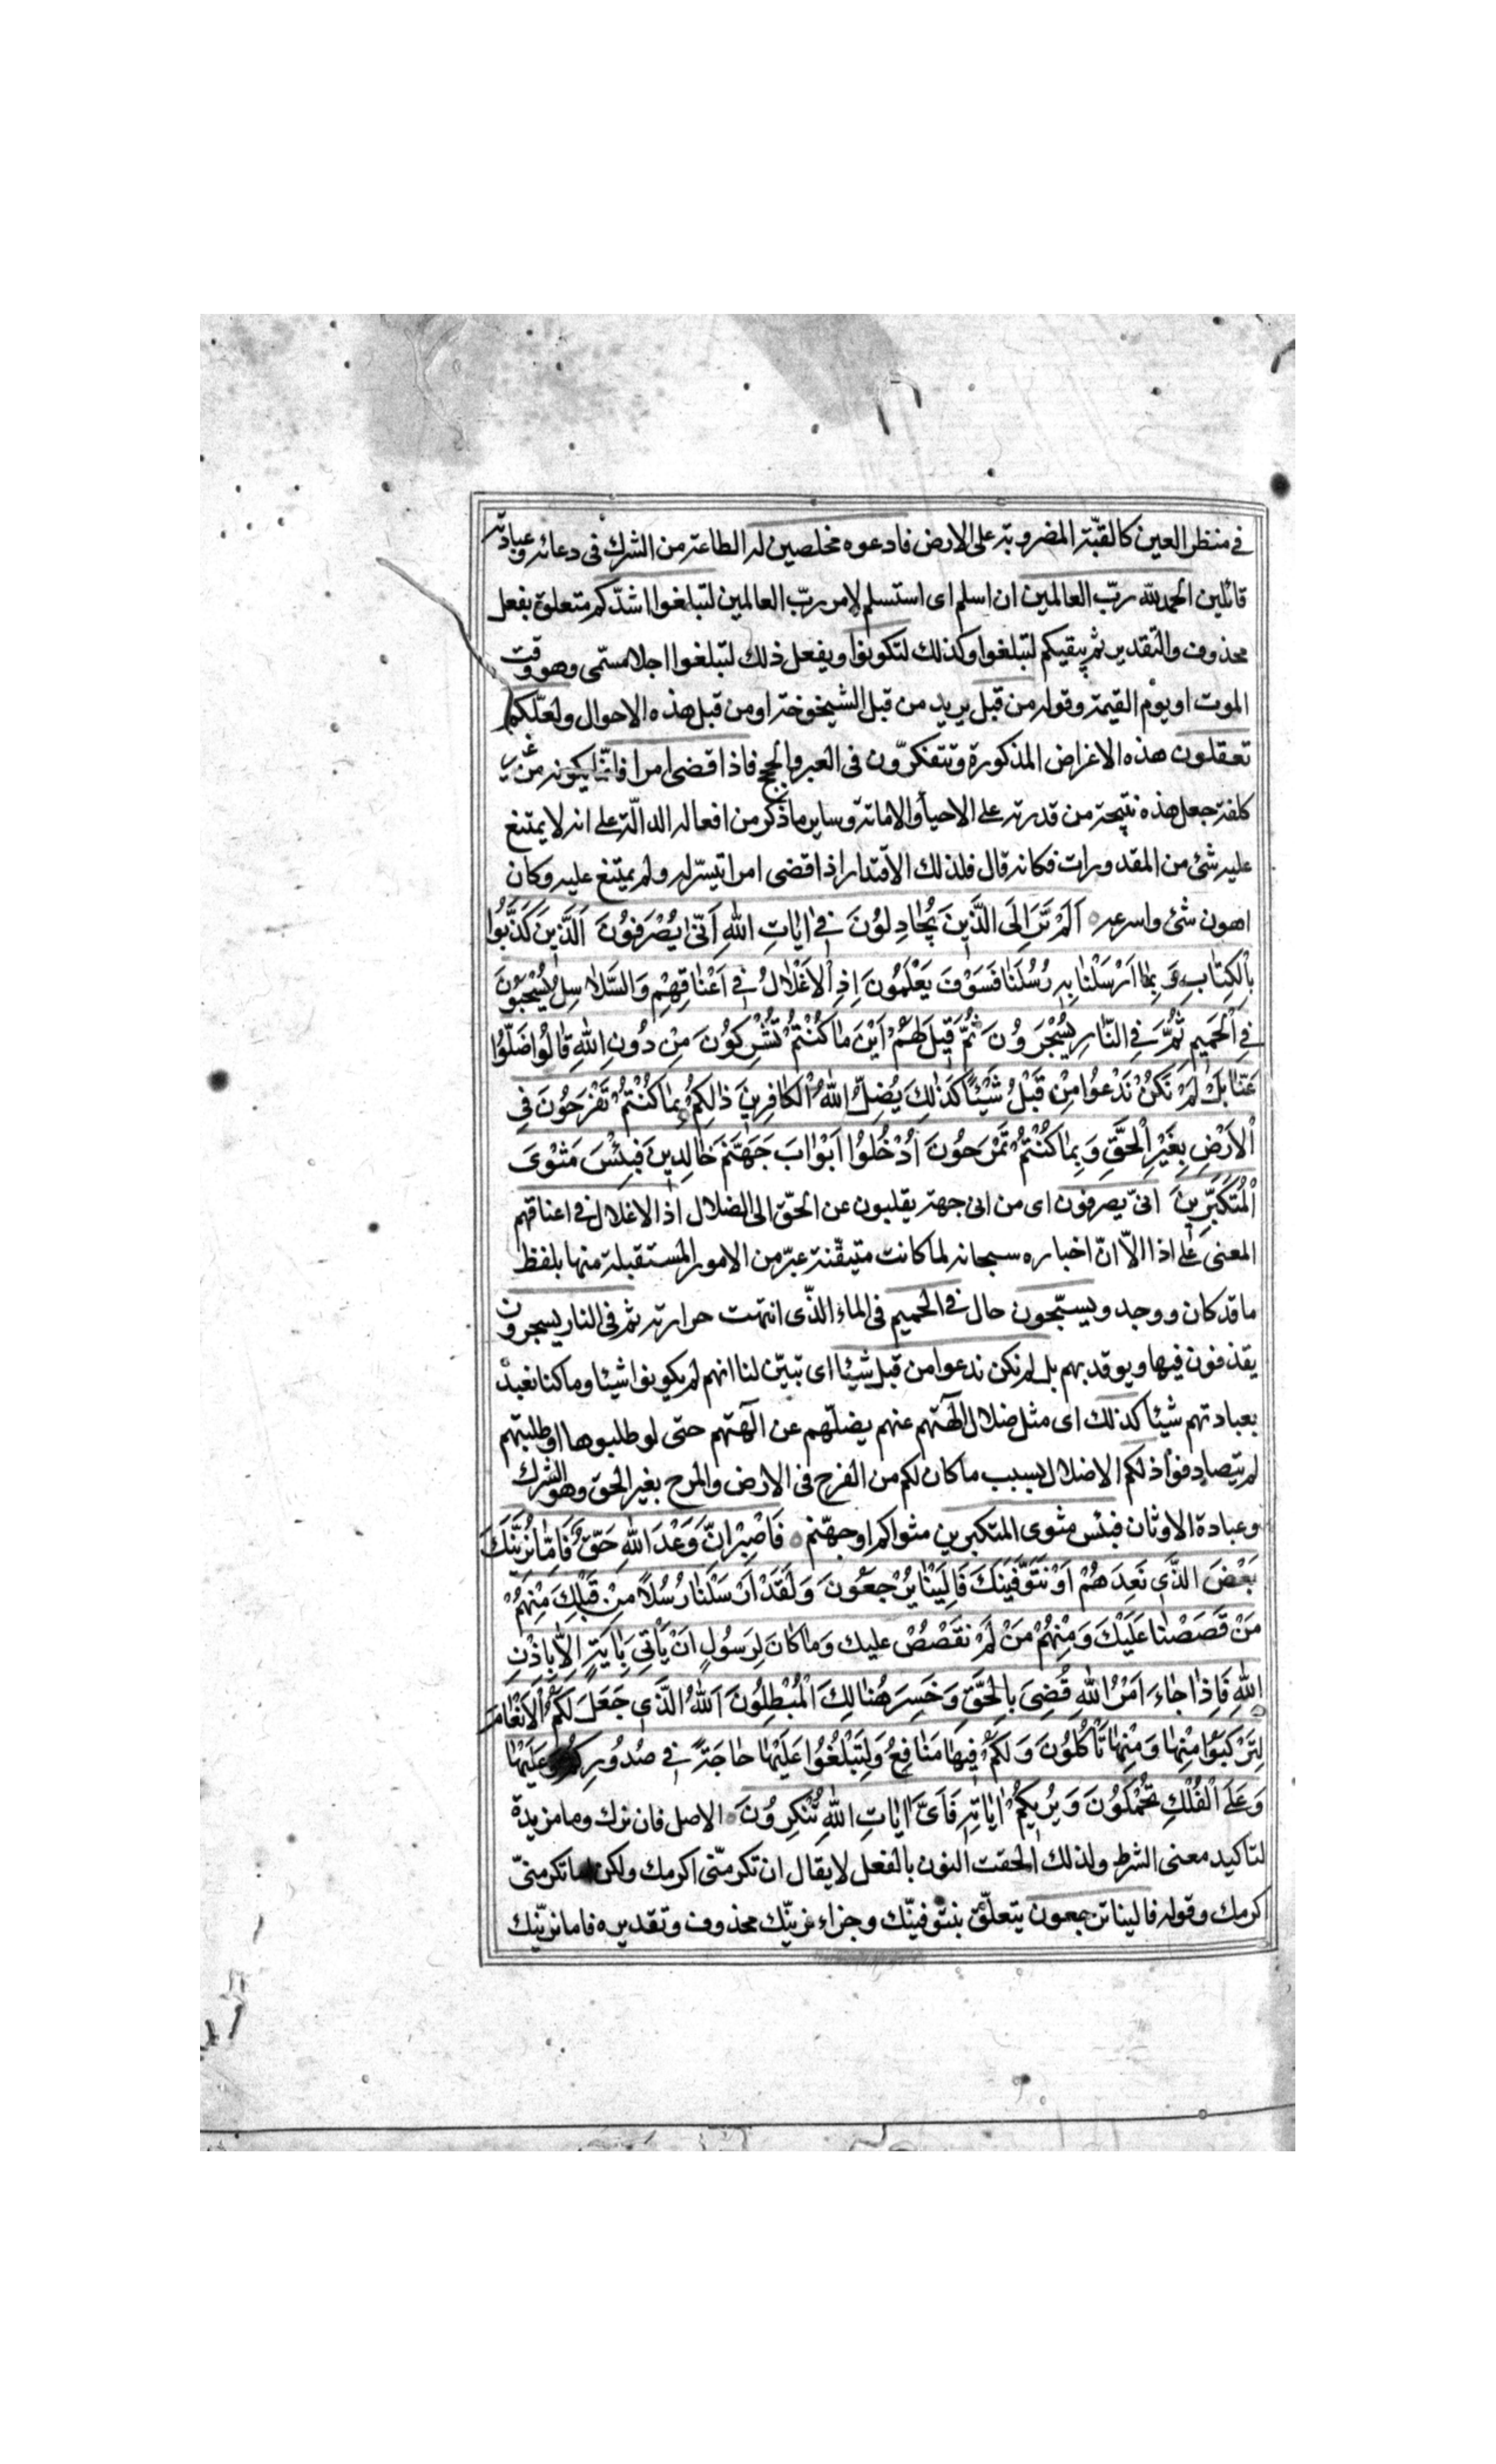 في منظر العين كالقبّة المضروبة على الارض فادعوه مخلصين له الطاعة من الشرك فى دعائه وعبادته
قائلين الحمد لله ربّ العالمين ان اسلم اى استسلم لامر ربّ العالمين لتبلغوا اشدّكم متعلق بفعل
محذوف والتقدير ثم يبقيكم لتبلغوا وكذلك لتكونوا ويفعل ذلك لتبلغوا اجلا مسمّى وهو وقت
الموت او يوم القيمة وقوله من قبل يريد من قبل الشيخوخة او من قبل هذه الاحوال ولعلّكم
تعقلون هذه الاغراض المذكورة وتتفكّرون فى العبر والحجج فاذا قضى امرا فانّما يكونه من غير
كلفة جعل هذه نتيجة من قدرته على الاحياء والاماتة وساير ما ذكر من افعاله الدالّة على انه لا يمتنع
عليه شئ من المقدورات فكانه قال فلذلك الاقتدار اذا قضى امرا تيسّر له ولم يمتنع عليه وكان
اهون شئ واسرعه اَلَمْ تَرَ اِلَى الَّذِينَ يُجَادِلُونَ فِي اٰيَاتِ اللّٰهِ اَنّٰى يُصْرَفُونَ اَلَّذِينَ كَذَّبُوا
بِالْكِتَابِ وَبِمَا اَرْسَلْنَا بِهِ رُسُلَنَا فَسَوْفَ يَعْلَمُونَ اِذِ الْاَغْلَالُ فِي اَعْنَاقِهِمْ وَالسَّلَاسِلُ يُسْحَبُونَ
فِي الْحَمِيمِ ثُمَّ فِي النَّارِ يُسْجَرُونَ ثُمَّ قِيلَ لَهُمْ اَيْنَ مَا كُنْتُمْ تُشْرِكُونَ مِنْ دُونِ اللّٰهِ قَالُوا ضَلُّوا
عَنَّا بَلْ لَمْ نَكُنْ نَدْعُوا مِنْ قَبْلُ شَيْئًا كَذٰلِكَ يُضِلُّ اللّٰهُ الْكَافِرِينَ ذٰلِكُمْ بِمَا كُنْتُمْ تَفْرَحُونَ فِي
الْاَرْضِ بِغَيْرِ الْحَقِّ وَبِمَا كُنْتُمْ تَمْرَحُونَ اُدْخُلُوا اَبْوَابَ جَهَنَّمَ خَالِدِينَ فَبِئْسَ مَثْوَى
الْمُتَكَبِّرِينَ انىّ يصرفون اى من اىّ جهة يقلبون عن الحقّ الى الضلال اذ الاغلال فى اعناقهم
المعنى على اذا الاّ انّ اخباره سبحانه لما كانت متيقّنة عبّر من الامور المستقبلة منها بلفظ
ما قد كان ووجد ويسحبون حال فى الحميم فى الماء الذّى انتهت حرارته ثم فى النار يسجرون
يقذفون فيها ويوقد بهم بل لم نكن ندعوا من قبل شيئا اى تبيّن لنا انهم لم يكونوا شيئا وما كنا نعبد
بعبادتهم شيئا كذلك اى مثل ضلال الهتهم عنهم يضلّهم عن آلهتهم حتى لو طلبوها او طلبتهم
لم يتصادفوا ذلكم الاضلال بسبب ما كان لكم من الفرح فى الارض والمرح بغير الحق وهو الشرك
وعبادة الاوثان فبئس مثوى المتكبرين مثواكم او جهنّم فَاصْبِرْ اِنَّ وَعْدَ اللّٰهِ حَقٌّ فَاِمَّا نُرِيَنَّكَ
بَعْضَ الَّذِي نَعِدُهُمْ اَوْ نَتَوَفَّيَنَّكَ فَاِلَيْنَا يُرْجَعُونَ وَلَقَدْ اَرْسَلْنَا رُسُلًا مِنْ قَبْلِكَ مِنْهُمْ
مَنْ قَصَصْنَا عَلَيْكَ وَمِنْهُمْ مَنْ لَمْ نَقْصُصْ عليك وَمَا كَانَ لِرَسُولٍ اَنْ يَأْتِيَ بِاٰيَةٍ اِلَّا بِاِذْنِ
اللّٰهِ فَاِذَا جَاءَ اَمْرُ اللّٰهِ قُضِيَ بِالْحَقِّ وَخَسِرَ هُنَالِكَ الْمُبْطِلُونَ اَللّٰهُ الَّذِي جَعَلَ لَكُمُ الْاَنْعَامَ
لِتَرْكَبُوا مِنْهَا وَمِنْهَا تَأْكُلُونَ وَلَكُمْ فِيهَا مَنَافِعُ وَلِتَبْلُغُوا عَلَيْهَا حَاجَةً فِي صُدُورِكُمْ وَعَلَيْهَا
وَعَلَى الْفُلْكِ تُحْمَلُونَ وَيُرِيكُمْ اٰيَاتِهِ فَاَىَّ اٰيَاتِ اللّٰهِ تُنْكِرُونَ الاصل فان نرك وما مزيدة
لتاكيد معنى الشرط ولذلك الحقت النون بالفعل لا يقال ان تكرمنّى اكرمك ولكن اما تكرمنىّ
كرمك وقوله فالينا ترجعون يتعلّق بنتوفينّك وجزاء نرينّك محذوف وتقديره فاما نرينّك